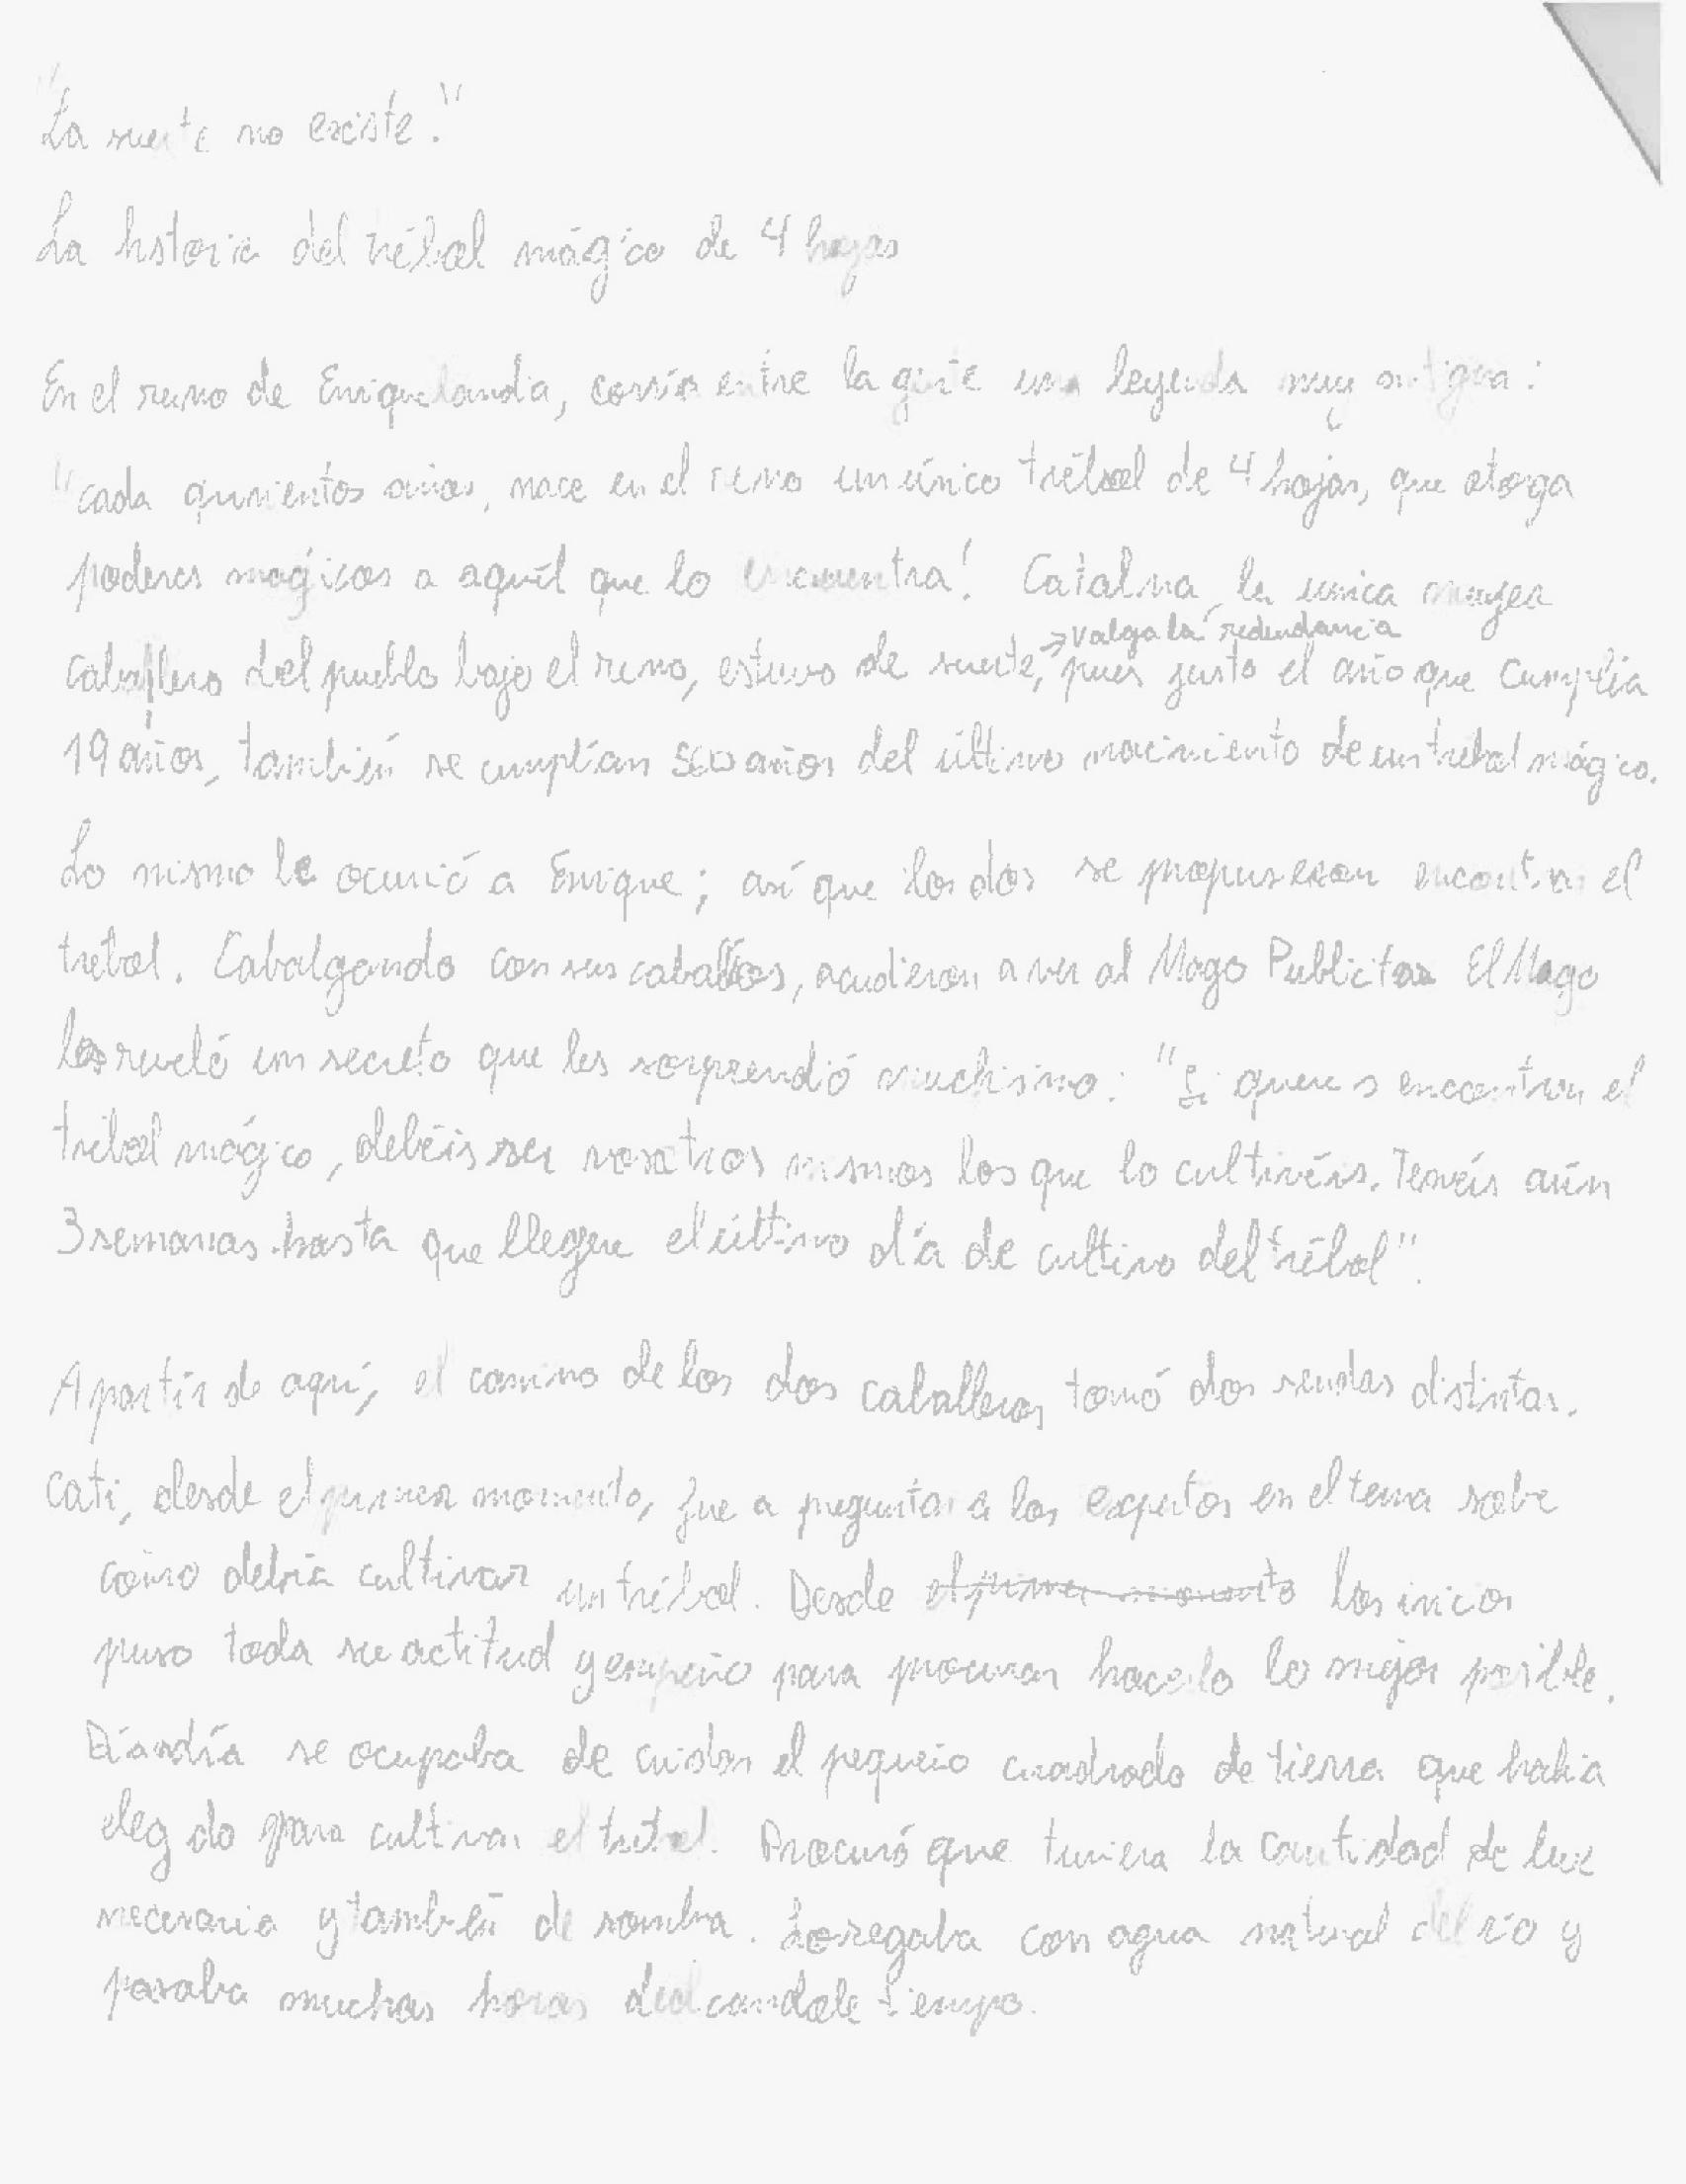 "La suerte no existe."
La historia del trébol mágico de 4 hojas
En el reino de Enriquelandia, corría entre la gente una leyenda muy antigua:
"cada quinientos años, nace en el reino un único trébol de 4 hojas, que otorga
poderes mágicos a aquél que lo encuentra! Catalina, la única mujer
→ valga la redundancia
caballero del pueblo bajo el reino, estuvo de suerte, pues justo el año que cumplía
19 años, también se cumplían 500 años del último nacimiento de un trébol mágico.
Lo mismo le ocurrió a Enrique; así que los dos se propusieron encontrar el
trébol. Cabalgando con sus caballos, acudieron a ver al Mago Publicitas El Mago
les reveló un secreto que les sorprendió muchísimo: "Si queréis encontrar el
trébol mágico, debéis ser vosotros mismos los que lo cultivéis. Tenéis aún
3 semanas hasta que llegue el último día de cultivo del trébol".
A partir de aquí, el camino de los dos caballeros tomó dos sendas distintas.
Cati, desde el primer momento, fue a preguntar a los expertos en el tema sobre
cómo debría cultivar un trébol. Desde el primer momento los inicios
puso toda su actitud y empeño para procurar hacerlo lo mejor posible.
Día a día se ocupaba de cuidar el pequeño cuadrado de tierra que había
elegido para cultivar el trébol. Procuró que tuviera la cantidad de luz
necesaria y también de sombra. Lo regaba con agua natural del río y
pasaba muchas horas dedicandole tiempo.